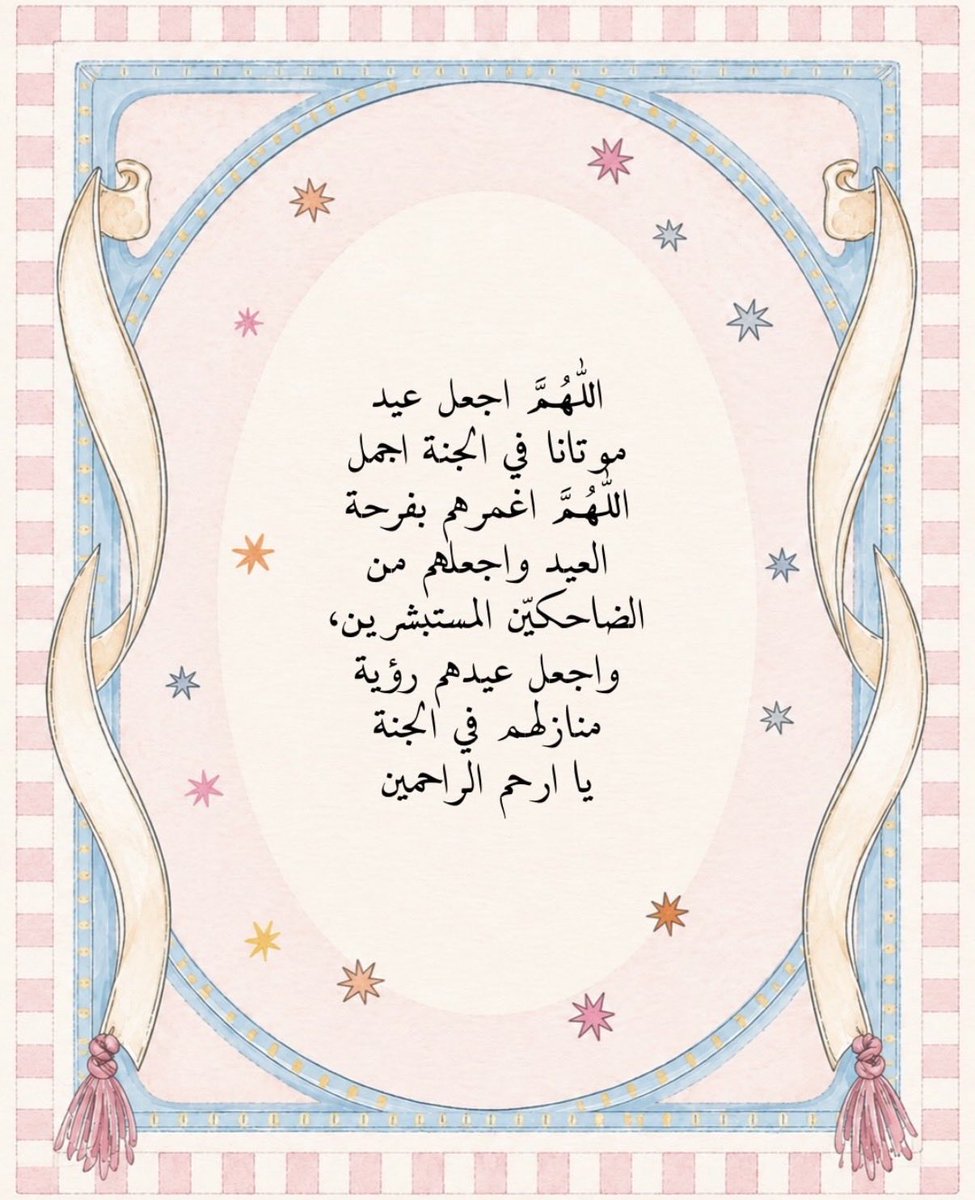 اللّٰهُمَّ اجعل عيد
موتانا في الجنة اجمل
اللّٰهُمَّ اغمرهم بفرحة
العيد واجعلهم من
الضاحكيّن المستبشرين،
واجعل عيدهم رؤية
منازلهم في الجنة
يا ارحم الراحمين